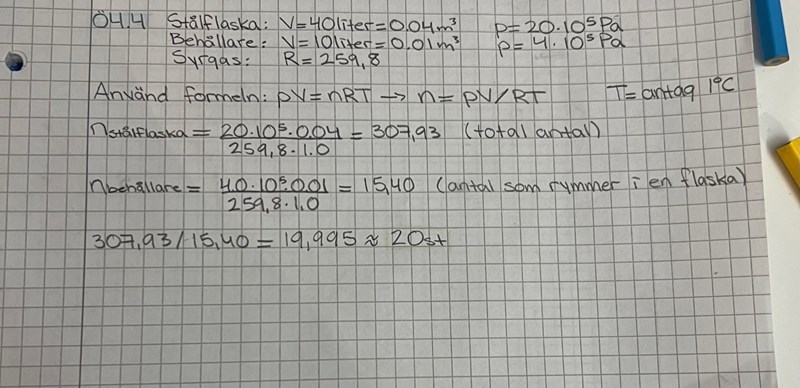 Ö4.4 Stålflaska: V=40liter=0.04m³ p=20·10⁵Pa
Behållare: V=10liter=0.01m³ p=4·10⁵Pa
Syrgas: R=259,8
Använd formeln: pV=nRT → n=pV/RT T=antag 1°C
nstålflaska = 20·10⁵·0.04 / 259,8·1.0 = 307,93 (total antal)
nbehållare = 4.0·10⁵·0.01 / 259,8·1,0 = 15,40 (antal som rymmer i en flaska)
307,93/15,40 = 19,995 ≈ 20st